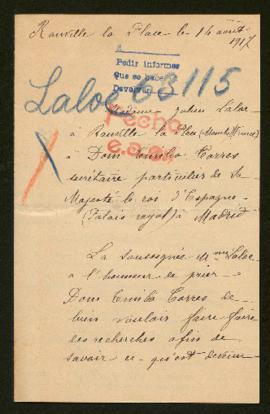 Rauville la Place le 14 août
1917
Pedir informes
que se hace
Devolver
Laloë 3115
Madame Julien Laloë
Hecho
à Rauville la Place (Manche) (France)
à Dom Emilio Torres
secrétaire particulier de Sa
Majesté le roi d'Espagne
(Palais royal) à Madrid
La soussignée Mme Laloë
a l'honneur de prier
Dom Emilio Torres de
bien vouloir faire faire
des recherches afin de
savoir ce qu'est devenu